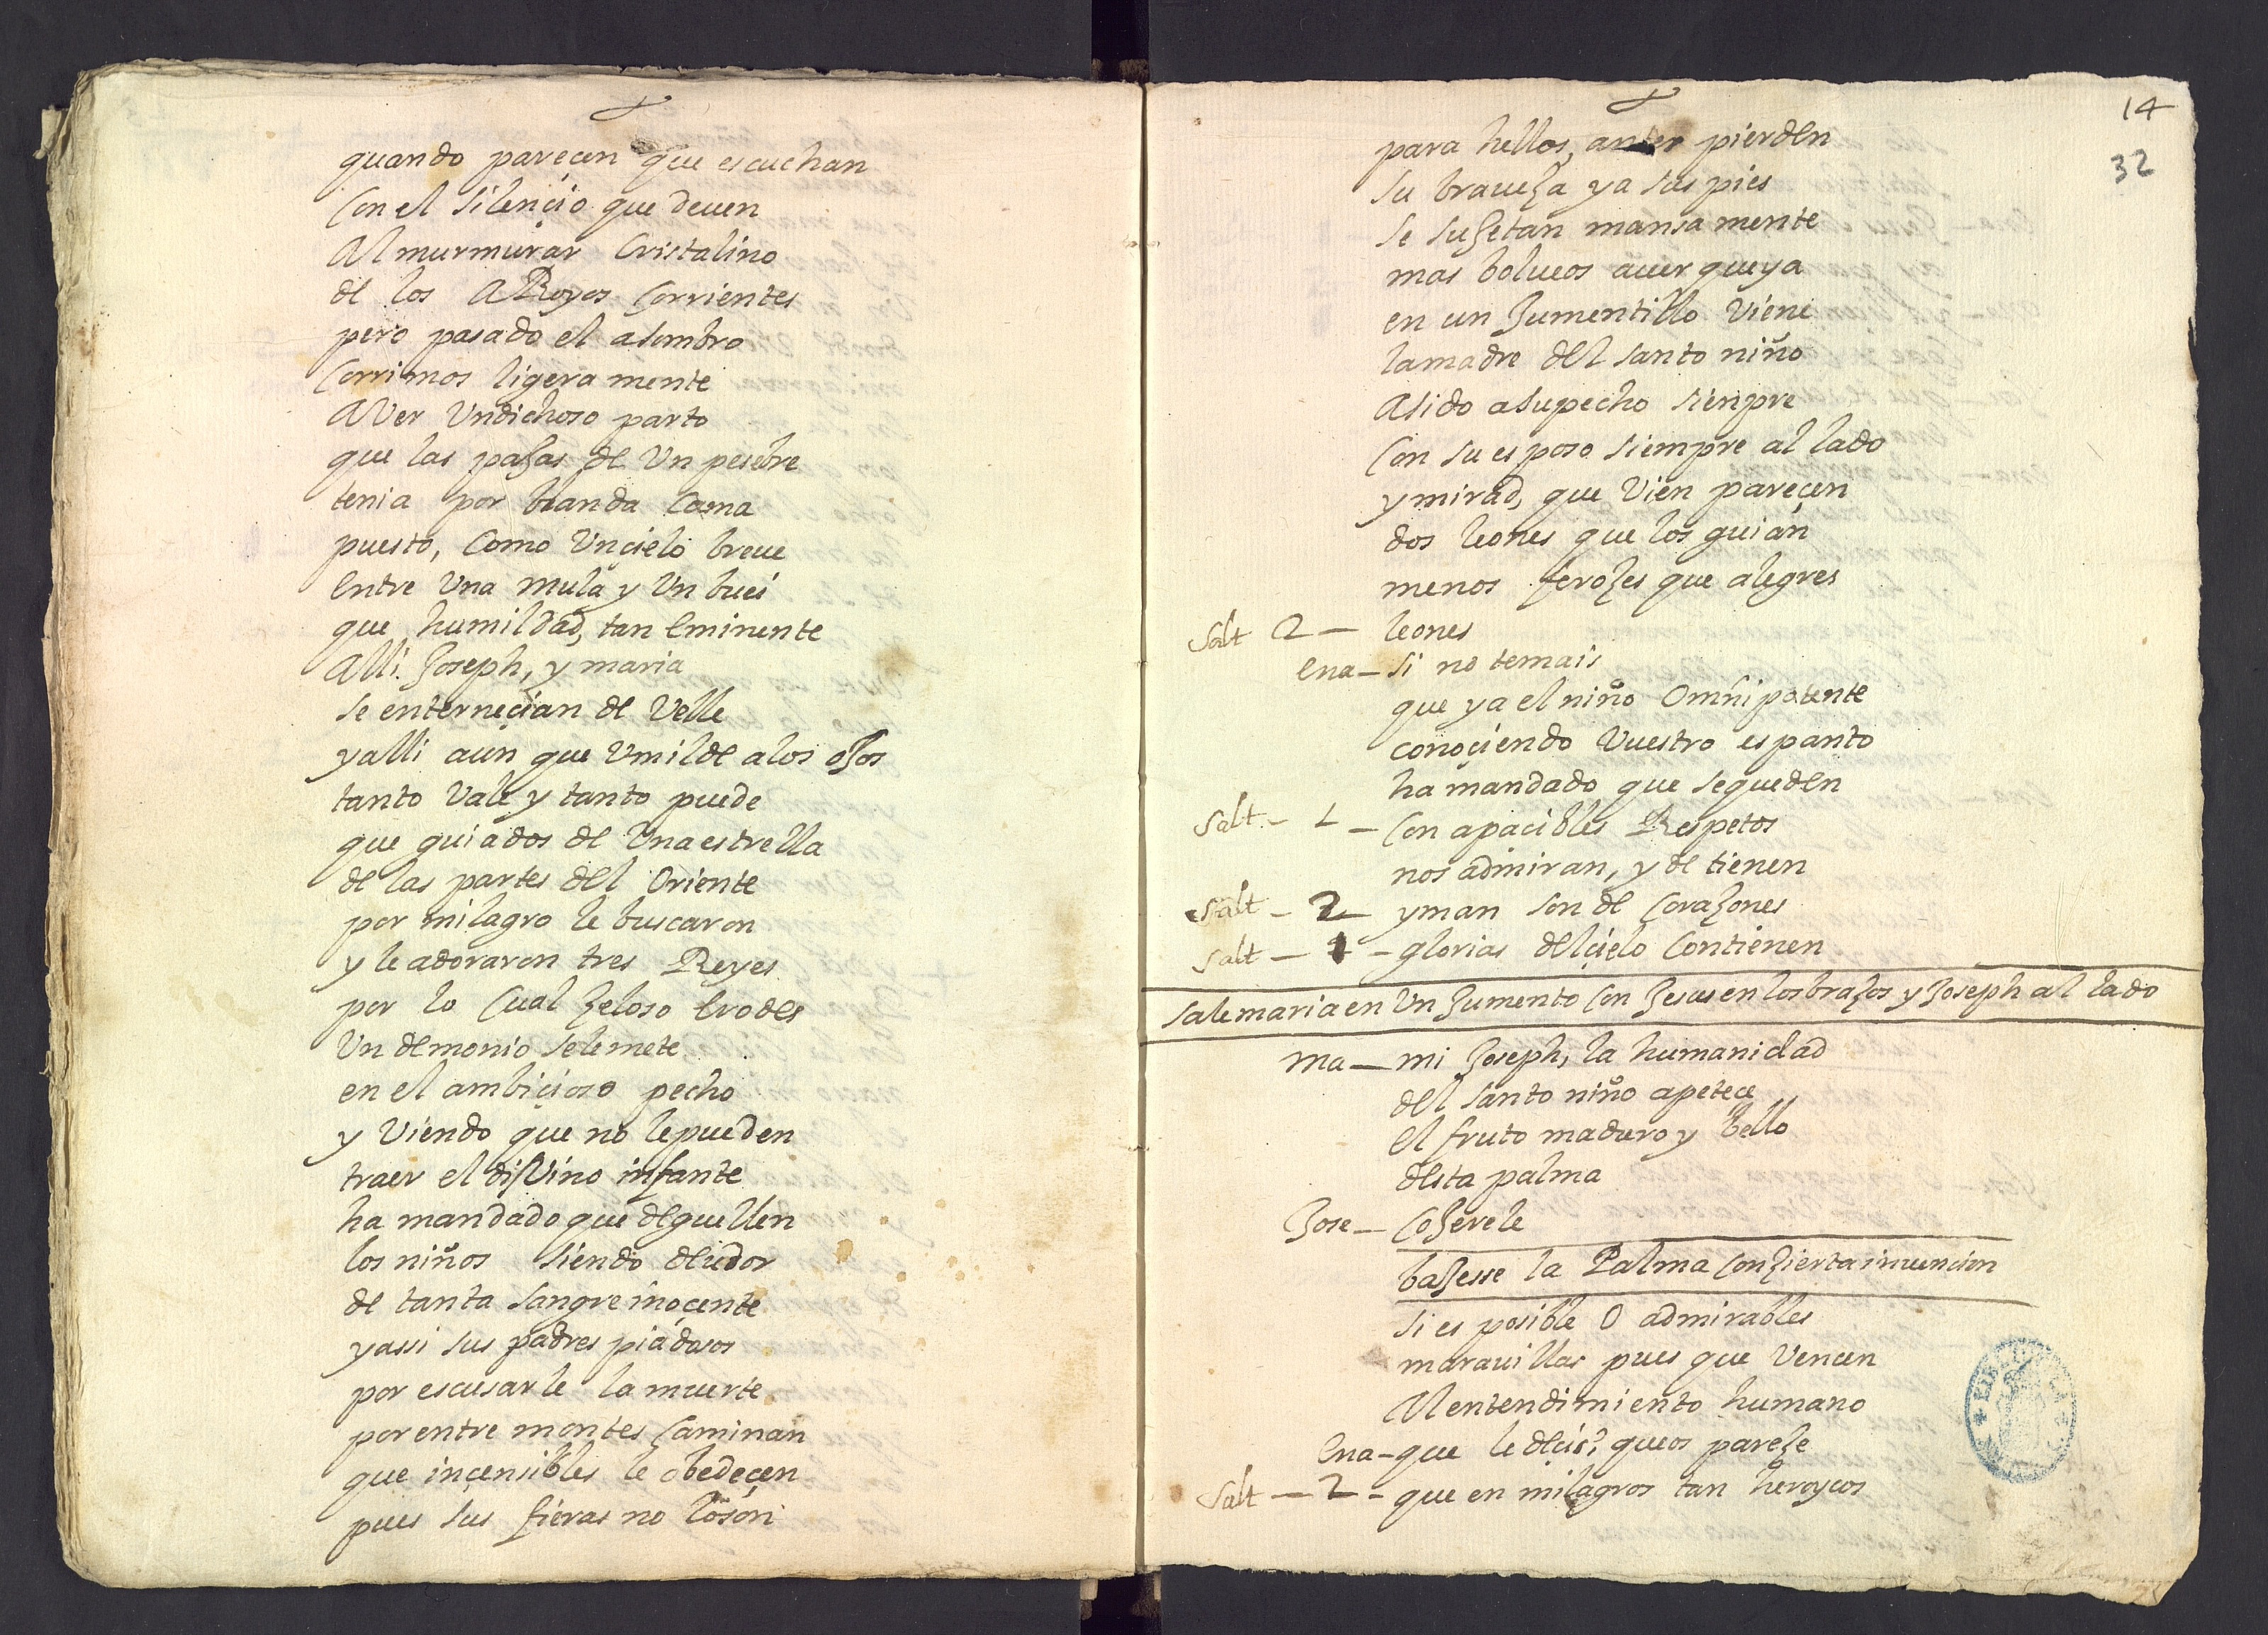 quando pareçen que escuchan
Con el silençio que deuen
Al murmurar Cristalino
de los aRoyos Corrientes
pero pasado el asombro
Corrimos ligera mente
AVer Vndichoso parto
que las pajas de Vn pesebre
tenia por blanda Cama
puesto, Como Vnçielo breue
entre Vna mula y Vn buei
que humildad, tan eminente
Alli Joseph, y maria
se enterneçian de Velle
yalli aun que Vmilde alos ojos
tanto Vale y tanto puede
que guiados de Vnaestrella
de las partes del Oriente
por milagro le buscaron
y le adoraron tres Reyes
por lo Cual zeloso erodes
Vn demonio selemete
en el ambiçioso pecho
y Viendo que no lepueden
traer el diVino infante
ha mandado que deguellen
los niños siendo deudor
de tanta sangre inoçente
yassi sus padres piadosos
por escusarle la muerte
porentre montes Caminan
que inçensibles le obedeçen
pues sus fieras no loson
14
32
para hellos, antes pierden
su braueza ya sus pies
se sujetan mansa mente
mas bolueos auer queya
en un Jumentillo Viene
lamadre del santo niño
Asido asupecho sienpre
Con su esposo siempre al lado
ymirad, que Vien pareçen
dos leones que los guian
menos ferozes que alegres
Salt 2 — leones
ena — si no temais
que ya el niño Omnipotente
conoçiendo Vuestro espanto
ha mandado que sequeden
Salt. - 1 - Con apaçibles Respetos
nos admiran, y de tienen
Salt - 2 - yman son de Corazones
Salt - 1 - glorias delçielo Contienen
sale maria en Vn Jumento Con Jesus en los brazos y Joseph al lado
ma — mi Joseph, la humanidad
del santo niño apetece
el fruto maduro y bello
desta palma
Jose — Cojerele
bajesse la Palma Con zierta inuencion
si es posible O admirables
marauillas pues que Vencen
Al entendimiento humano
ena - que le deçis? queos pareze
Salt - 2 - que en milagros tan heroycos